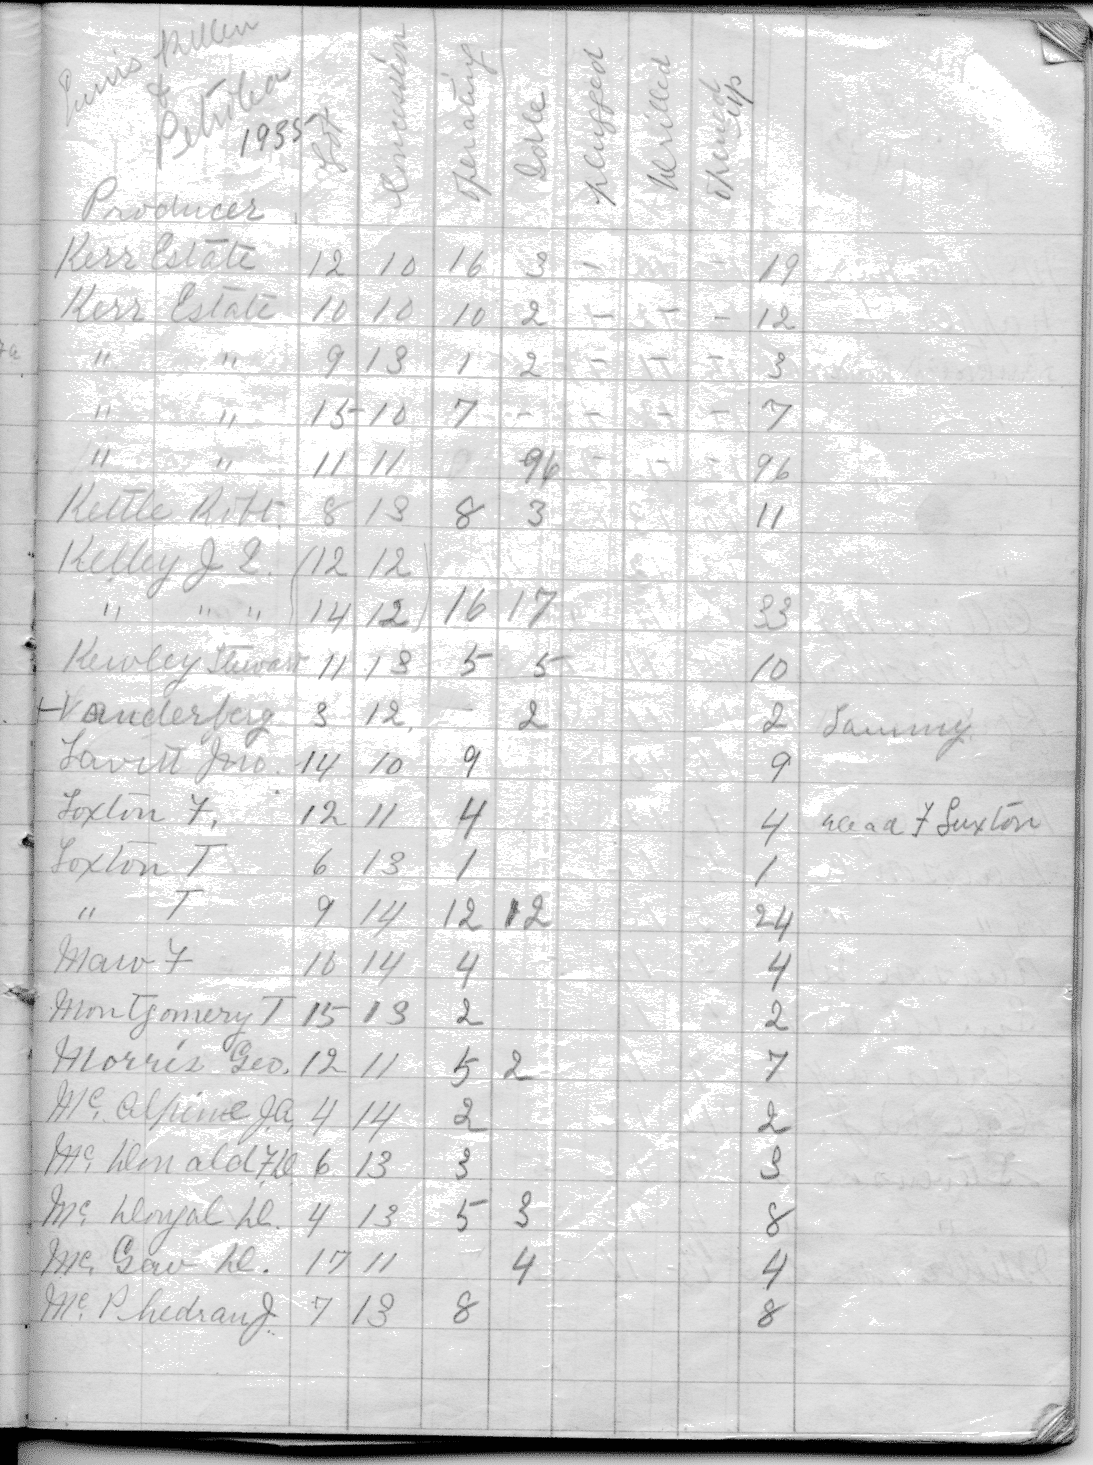 Ennis Killen
&
Petrolea
1935
Producer Lot Concession Operating Idle plugged Drilled opened up
Kerr Estate 12 10 16 3 - - 19
Kerr Estate 10 10 10 2 - - - 12
" " 9 13 1 2 - - - 3
" " 15 10 7 - - - - 7
" " 11 11 96 - - - 96
Kettle Robt. 8 13 8 3 11
Kelley J E. (12 12)
" " " (14 12) 16 17 33
Kewley Stewart 11 13 5 5 10
Vanderberg 3 12. - 2 2 Sammy
Lavitt Jno. 14 10 9 9
Loxton F. 12 11 4 4 dead F Luxton
Loxton T 6 13 1 1
" T 9 14 12 12 24
Maw F 10 14 4 4
Montgomery T 15 13 2 2
Morris Geo. 12 11 5 2 7
Mc. Alpine J.A. 4 14 2 2
Mc. Donald F.D. 6 13 3 3
Mc D. 4 13 5 3 8
Mc. Gaw D. 17 11 4 4
Mc. Phedran J. 7 13 8 8